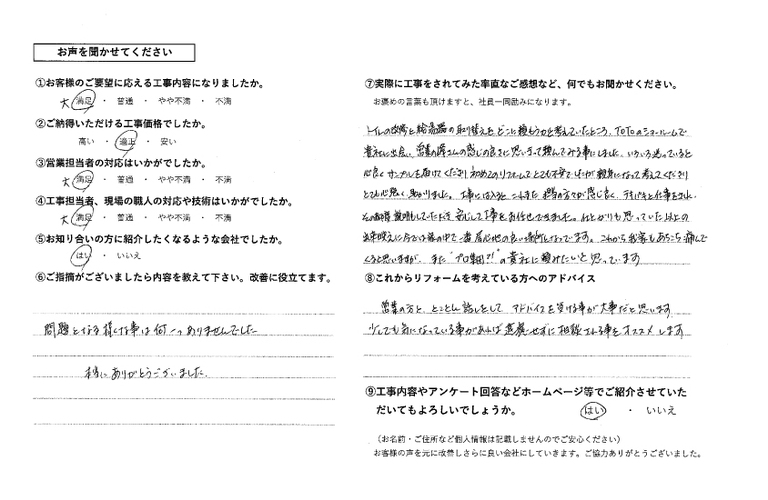 お声を聞かせてください
①お客様のご要望に応える工事内容になりましたか。
大 満足 ・ 普通 ・ やや不満 ・ 不満
②ご納得いただける工事価格でしたか。
高い ・ 適正 ・ 安い
③営業担当者の対応はいかがでしたか。
大 満足 ・ 普通 ・ やや不満 ・ 不満
④工事担当者、現場の職人の対応や技術はいかがでしたか。
大 満足 ・ 普通 ・ やや不満 ・ 不満
⑤お知り合いの方に紹介したくなるような会社でしたか。
はい ・ いいえ
⑥ご指摘がございましたら内容を教えて下さい。改善に役立てます。
問題となる様な事は何一つありませんでした
本当にありがとうございました。
⑦実際に工事をされてみた率直なご感想など、何でもお聞かせください。
お褒めの言葉も頂けますと、社員一同励みになります。
トイレの改修と給湯器の取り替えをどこに頼もうかと考えていたところ、TOTOのショールームで
貴社に出会い、営業の さんの感じの良さに思い切って頼んでみる事にしました。いろいろ迷っていると
心良くサンプルを届けてくださり 初めてのリフォームでとても不安でしたが親身になって考えてくださり
とても心強く 助かりました。工事に入るとこれまた 担当の方々が感じ良く、テキパキと仕事をされ、
その都度説明していただき 安心して工事をお任せできました。仕上がりも思っていた以上の
出来映えに今では家の中で一番居心地の良い場所になっています。これから我家もあちこち傷んで
くると思いますが、また"プロ集団?!"の貴社に頼みたいと思っています
⑧これからリフォームを考えている方へのアドバイス
営業の方と、とことん話しをして アドバイスを受ける事が大事だと思います
少しでも気になっている事があれば遠慮せずに相談される事をオススメします
⑨工事内容やアンケート回答などホームページ等でご紹介させていた
だいてもよろしいでしょうか。 はい ・ いいえ
（お名前・ご住所など個人情報は記載しませんのでご安心ください）
お客様の声を元に改善しさらに良い会社にしていきます。ご協力ありがとうございました。